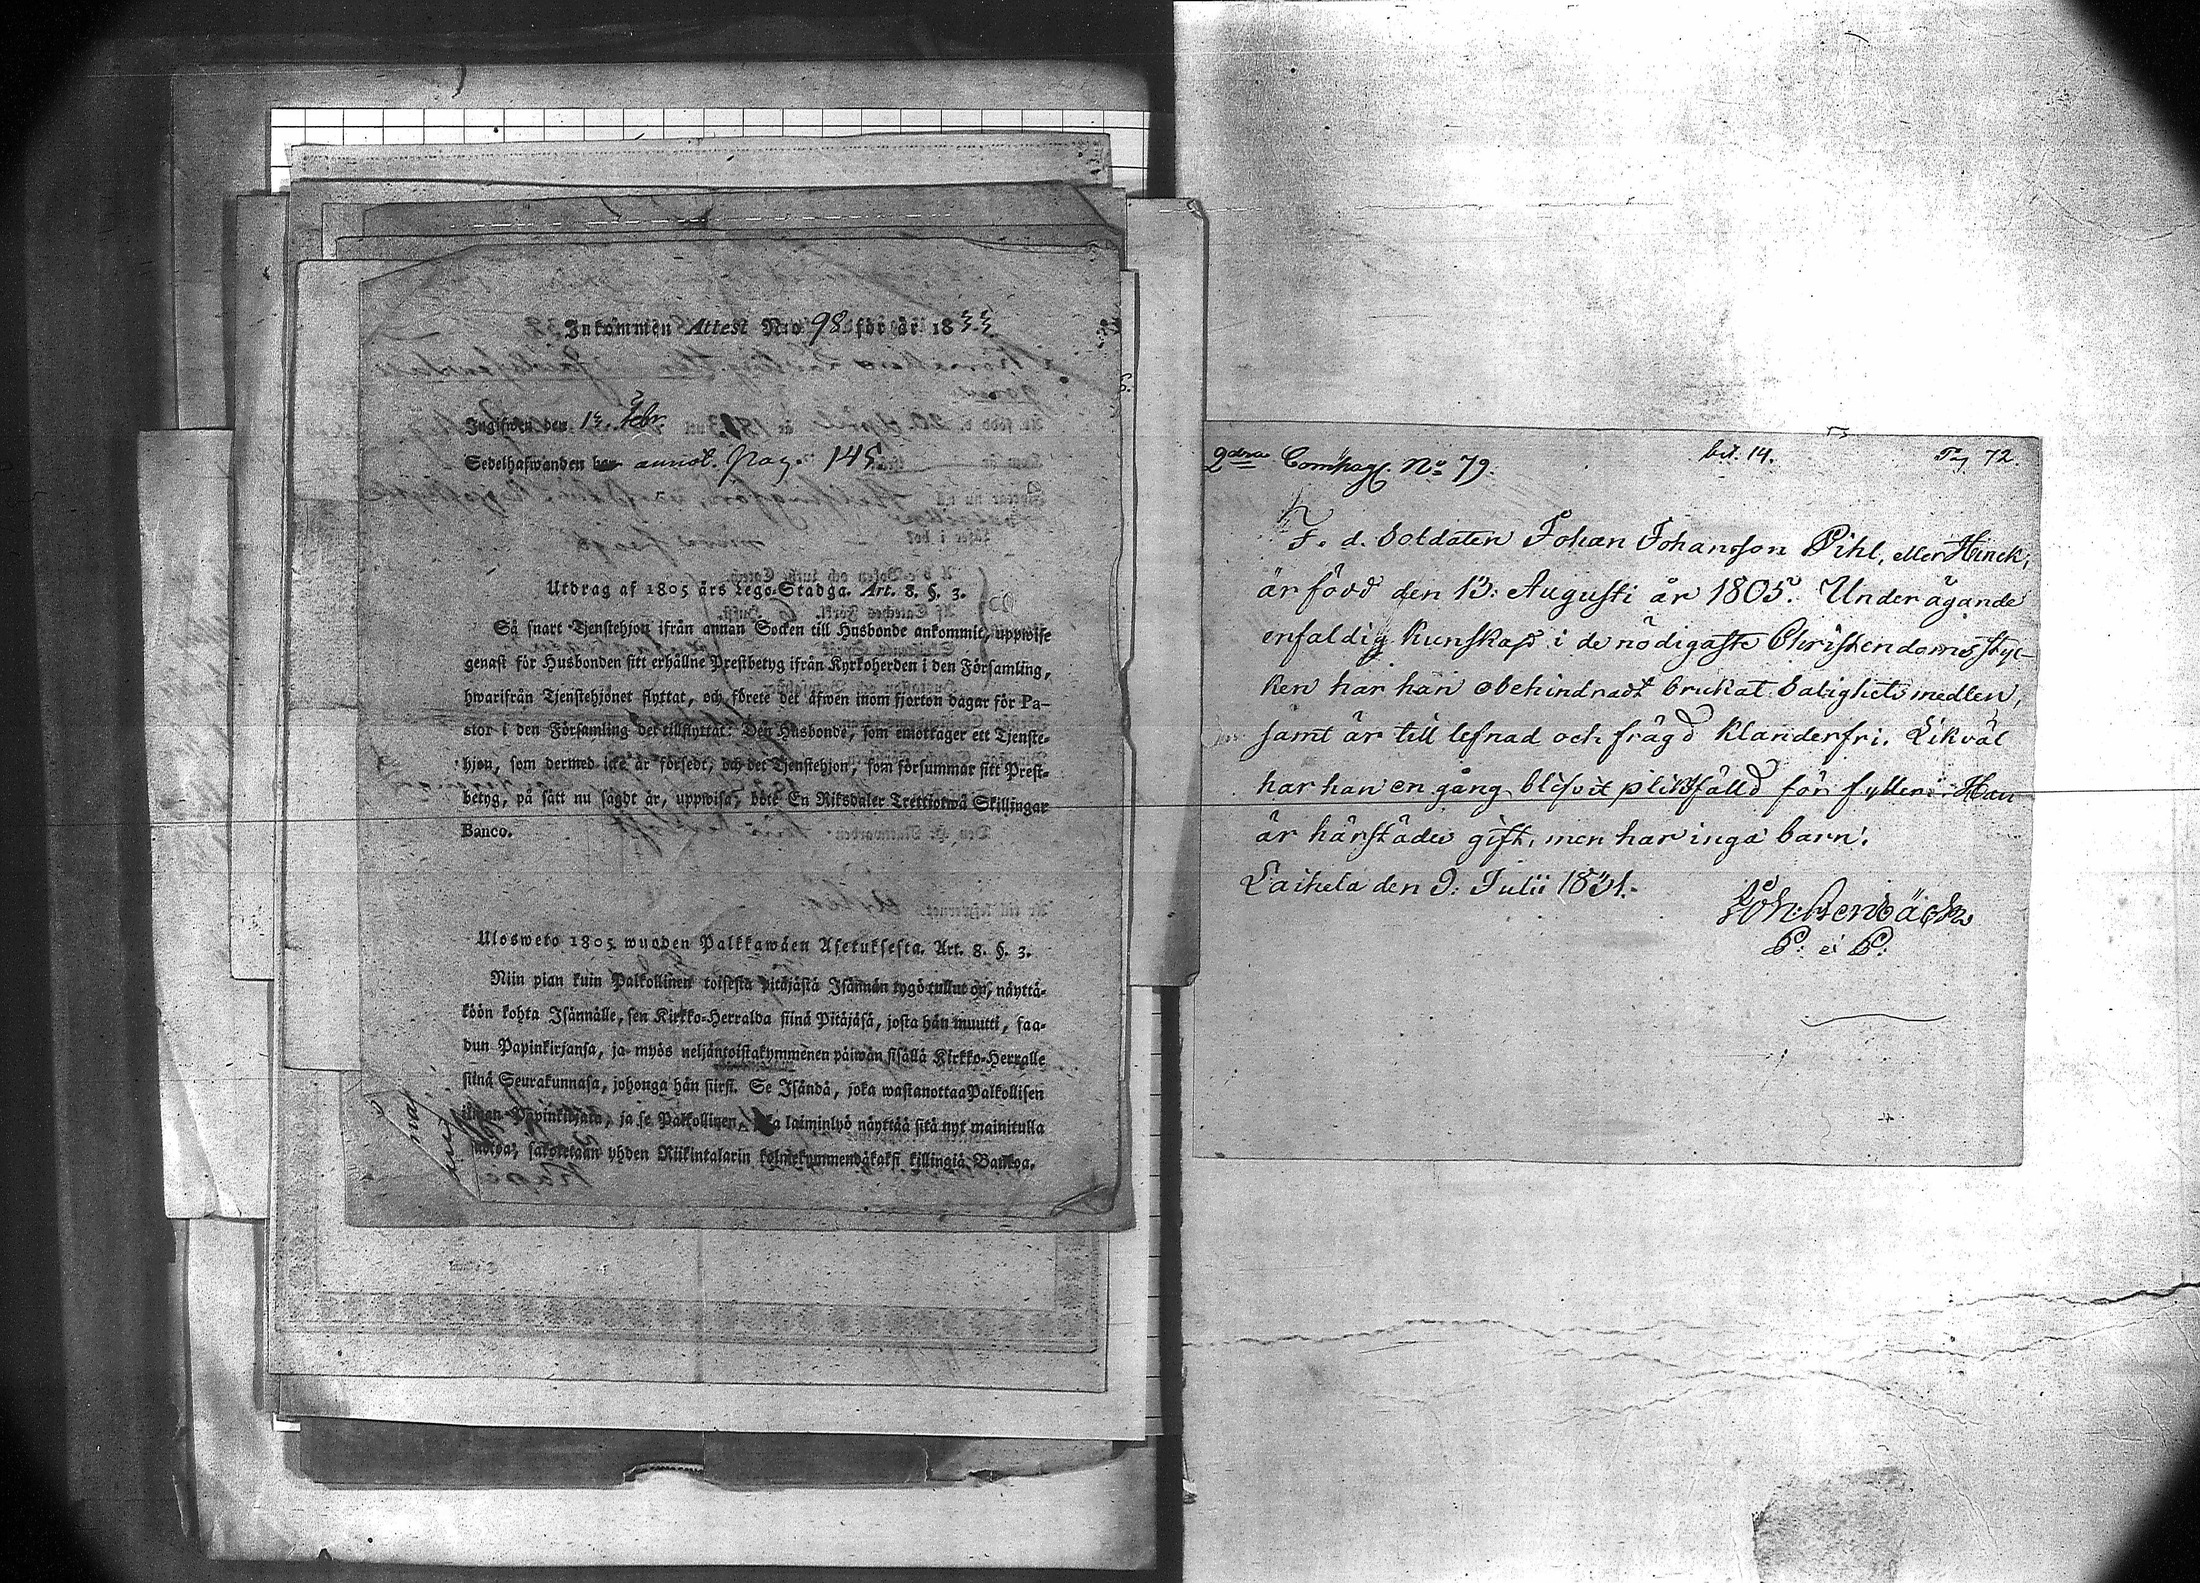 Inkommen Attest N:o 98 för år 1833
Ingifwen den 13 Febr.
Sedelhafwanden har annot. Pag. 145
Utdrag af 1805 års Lego-Stadga. Art. 8. §. 3.
Så snart Tjenstehjon ifrån annan Socken till Husbonde ankommit, uppwise
genast för Husbonden sitt erhållne Prestbetyg ifrån Kyrkoherden i den Församling,
hwarifrån Tjenstehjonet flyttat, och förete det äfwen inom fjorton dagar för Pa-
stor i den Församling det tillflyttat. Den Husbonde, som emottager ett Tjenste-
hjon, som dermed icke är försedt, och det Tjenstehjon, som försummar sitt Prest-
betyg, på sätt nu sagdt är, uppwisa, böte En Riksdaler Trettiotwå Skillingar
Banco.
Ulosweto 1805 wuoden Palkkawäen Asetuksesta. Art. 8. §. 3.
Niin pian kuin Palkollinen toisesta pitäjästä Isännän tygö tullut on, näyttä-
köön kohta Isännälle, sen Kirkko-Herralda siinä Pitäjäsä, josta hän muutti, saa-
dun Papinkirjansa, ja myös neljäntoistakymmenen päiwän sisällä Kirkko-Herralle
siinä Seurakunnasa, johonga hän siirsi. Se Isändä, joka wastanottaa Palkollisen
ilman Papinkirjata, ja se Palkollinen, joka laiminlyö näyttää sitä nyt mainitulla
muotoa, sakotetaan yhden Riikintalarin kolmekymmendäkaksi killingiä Bankoa.
2dra Compagt. No 79.
bit. 14.
Pag 72.
F. d. Soldaten Johan Johansson Pihl, eller Hinck,
är född den 13: Augusti år 1805. Under ägande
enfaldig kunskap i de nödigaste Christendomsstyc-
ken har han obehindradt brukat Salighetsmedlen,
samt är till lefnad och frägd klanderfri. Likväl
har han en gång blifvit pliktfälld för fylleri. Han
är härstädes gift, men har inga barn.
Laihela den 9: Julii 1831.
Joh: Stenbäck
P: et P: